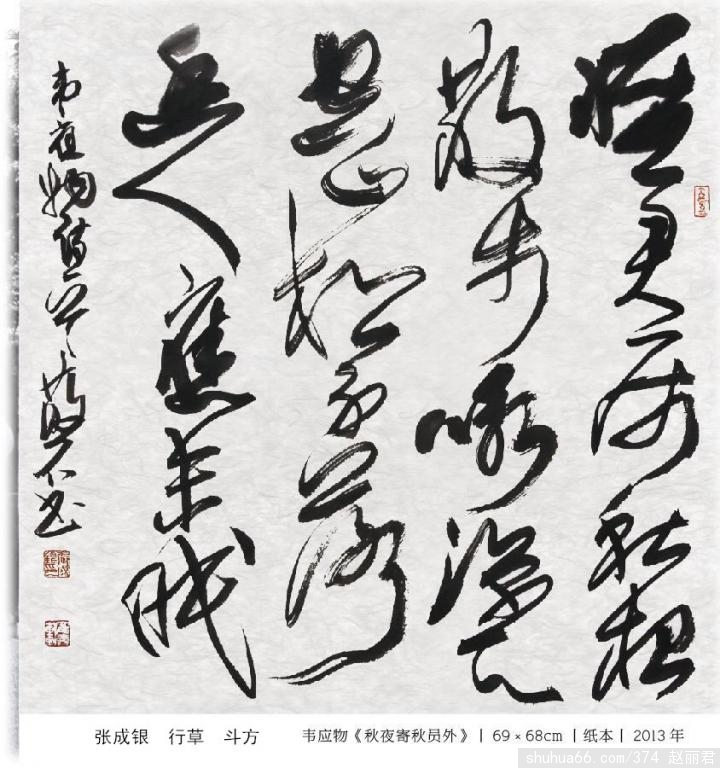 懷君屬秋夜
散步咏涼天
空山松子落
幽人應未眠
韦应物诗一首
张成银 行草 斗方 韦应物《秋夜寄秋员外》| 69×68cm | 纸本 | 2013 年
shuhua66.com/374 赵丽君